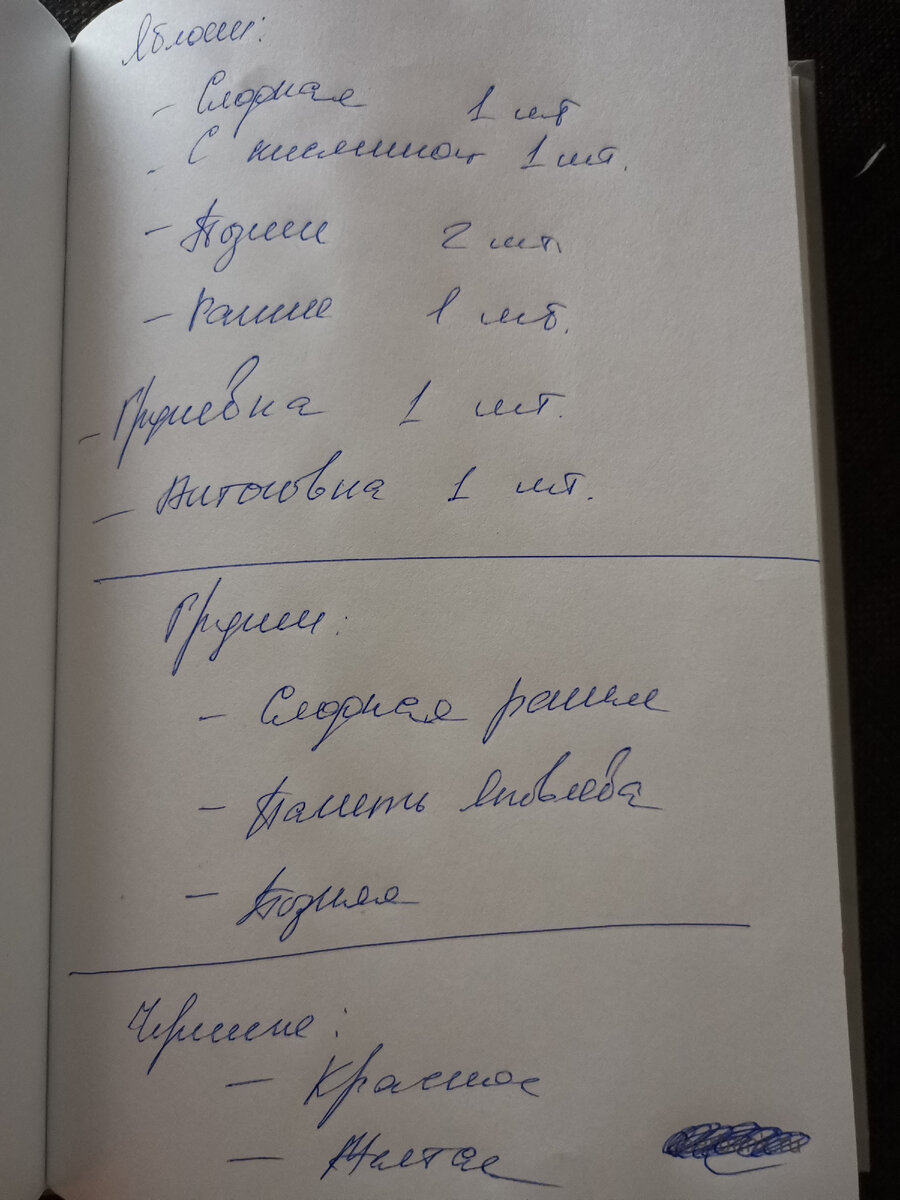 Яблони:
- Сладкая 1 шт
- С кислинкой 1 шт.
- Позние 2 шт.
- Ранние 1 шт.
- Грушевка 1 шт.
- Антоновка 1 шт.
Груши:
- Сладкая ранняя
- Память Яковлева
- Позняя
Черешне:
- Красное
- Желтое